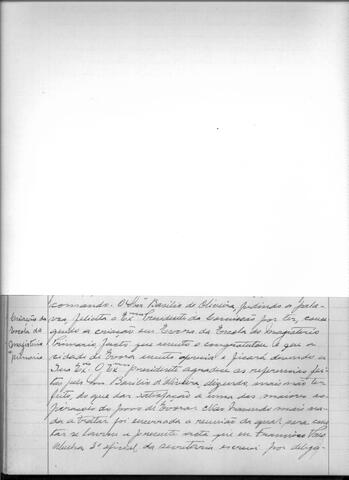 comando. O Snr. Basilio de Oliveira, pedindo a pala-
vra, felicita o Exmo Presidente da Comissão por ter, conse-
guido a criação em Evora da Escola do Magistério
Primario, facto que muito o congratulou e que a
cidade de Evora muito aprecia e ficará devendo a
Sua Exa. O Exmo presidente agradece as referencias fei-
tas pelo Snr Basilio d'Oliveira, dizendo, mais não ter
feito, do que dar satisfação a uma das maiores as-
pirações do povo de Evora. Não havendo mais na-
da a tratar foi encerrada a reunião da qual para cons-
tar se lavrou a presente acta que eu Francisco
3º oficial da secretaria escrevi por delega-
Criação da
Escola do
Magistério
primario